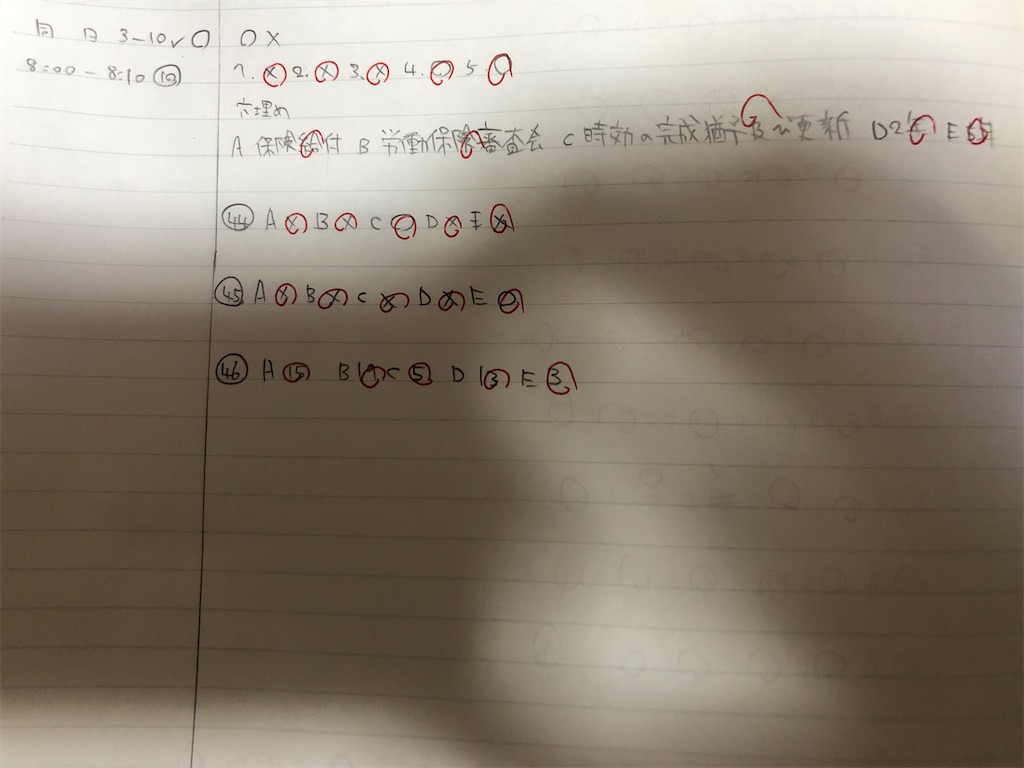 同日 3-10✓○
8:00-8:10 ⑩
○×
1.× 2.× 3.× 4.○ 5.○
穴埋め
A 保険給付 B 労働保険審査会 C 時効の完成猶予及び更新 D 2年 E
㊹ A× B× C○ D× E×
㊺ A B× C× D× E○
㊻ A⑮ B C⑤ D 13 E 3